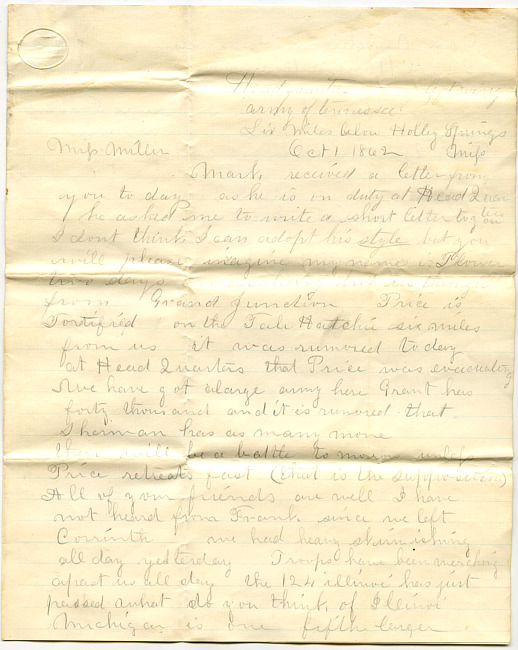 army of tennessee
Six Miles below Holley Springs
Miss Miller Oct 1 1862 Miss
Mark received a letter from
you to day as he is on duty at Head Quarters
he asked me to write a short letter to you
I dont think I can adopt his style but you
will please imagine my name is
two days
from Grand Junction Price is
Fortified on the Tale Hatchie six miles
from us it was rumored to day
at Head Quarters that Price was evacuating
We have got a large army here Grant has
forty thousand and it is rumored that
Sherman has as many more
there will be a battle to morrow unless
Price retreats fast (that is the supposition)
All of your friends are well I have
not heard from Frank since we left
Corrinth we had heavy skirmishing
all day yesterday Troops have been marching
apast us all day the 124 illinoi has just
passed what do you think of Illinoi
Michigan is one fifth larger